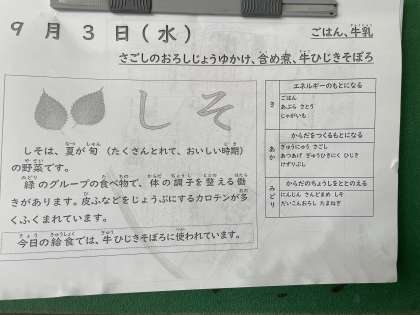 ９月３日(水)
ごはん、牛乳
さごしのおろしじょうゆかけ、含め煮、牛ひじきそぼろ
しそ
しそは、夏が旬（たくさんとれて、おいしい時期）
の野菜です。
緑のグループの食べ物で、体の調子を整える働
きがあります。皮ふなどをじょうぶにするカロテンが多
くふくまれています。
今日の給食では、牛ひじきそぼろに使われています。
き
エネルギーのもとになる
ごはん
あぶら さとう
じゃがいも
あか
からだをつくるもとになる
ぎゅうにゅう さごし
あつあげ ぎゅうひきにく ひじき
けずりぶし
みどり
からだのちょうしをととのえる
にんじん さんどまめ しそ
だいこんおろし たまねぎ